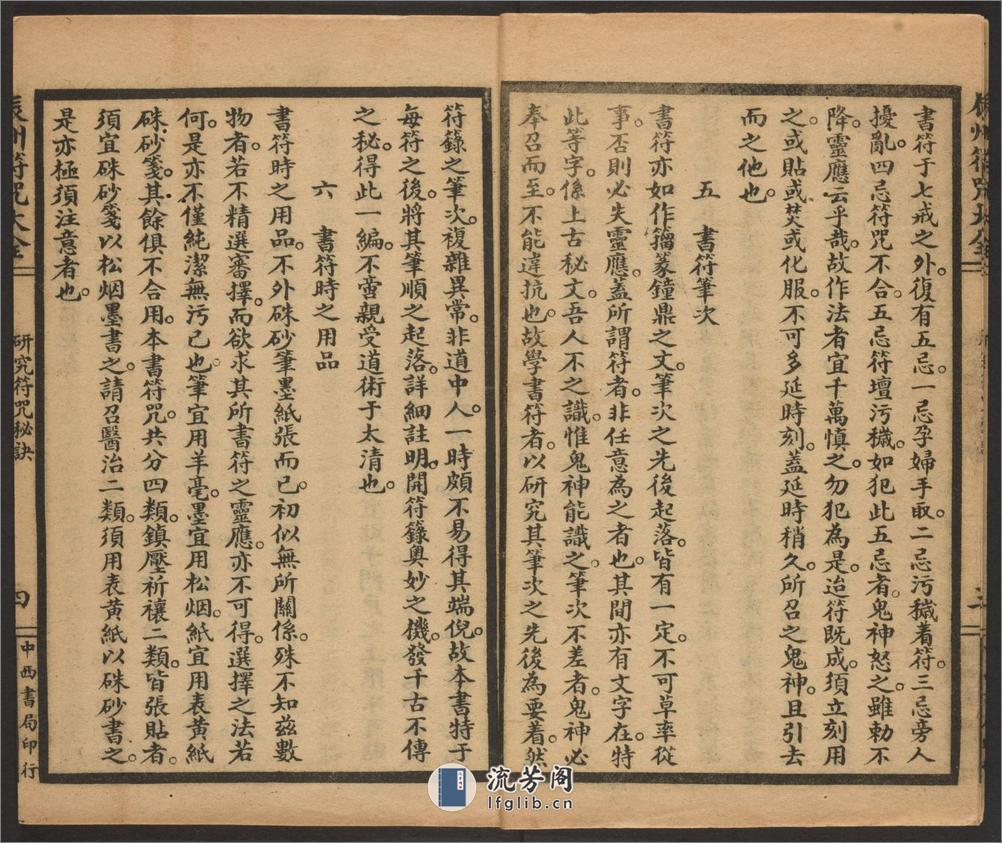 書符于七戒之外。復有五忌。一忌孕婦手取。二忌污穢着符。三忌旁人
擾亂。四忌符咒不合。五忌符壇污穢。如犯此五忌者。鬼神怒之。雖勅不
降。靈應云乎哉。故作法者宜千萬慎之。勿犯為是。迨符既成。須立刻用
之。或貼或焚或化服。不可多延時刻。蓋延時稍久。所召之鬼神。且引去
而之他也。
五　書符筆次
書符亦如作籀篆鐘鼎之文。筆次之先後起落。皆有一定。不可草率從
事。否則必失靈應。蓋所謂符者。非任意為之者也。其間亦有文字在。特
此等字。係上古秘文。吾人不之識。惟鬼神能識之。筆次不差者。鬼神必
奉召而至。不能違抗也。故學書符者。以研究其筆次之先後為要着。然
符籙之筆次。複雜異常。非道中人。一時頗不易得其端倪。故本書特于
每符之後。將其筆順之起落。詳細註明。開符籙奧妙之機。發千古不傳
之秘。得此一編。不啻親受道術于太清也。
六　書符時之用品
書符時之用品。不外硃砂筆墨紙張而已。初似無所關係。殊不知茲數
物者。若不精選審擇。而欲求其所書符之靈應。亦不可得。選擇之法若
何。是亦不僅純潔無污已也。筆宜用羊毫。墨宜用松烟。紙宜用表黃紙
硃砂箋。其餘俱不合用。本書符咒。共分四類。鎮壓祈禳二類。皆張貼者。
須宜硃砂箋。以松烟墨書之。請召醫治二類。須用表黃紙以硃砂書之。
是亦極須注意者也。
辰州符咒大全
研究符咒秘訣
四
中西書局印行
流芳阁
lfglib.cn